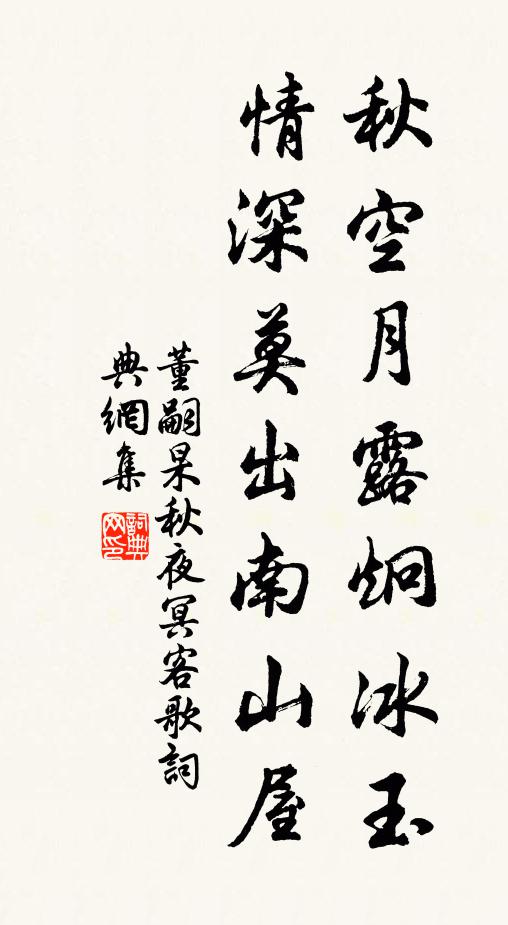 秋空月露炯冰玉
情深莫出南山屋
董嗣杲秋夜冥客歌詞
典網集
詞典网印